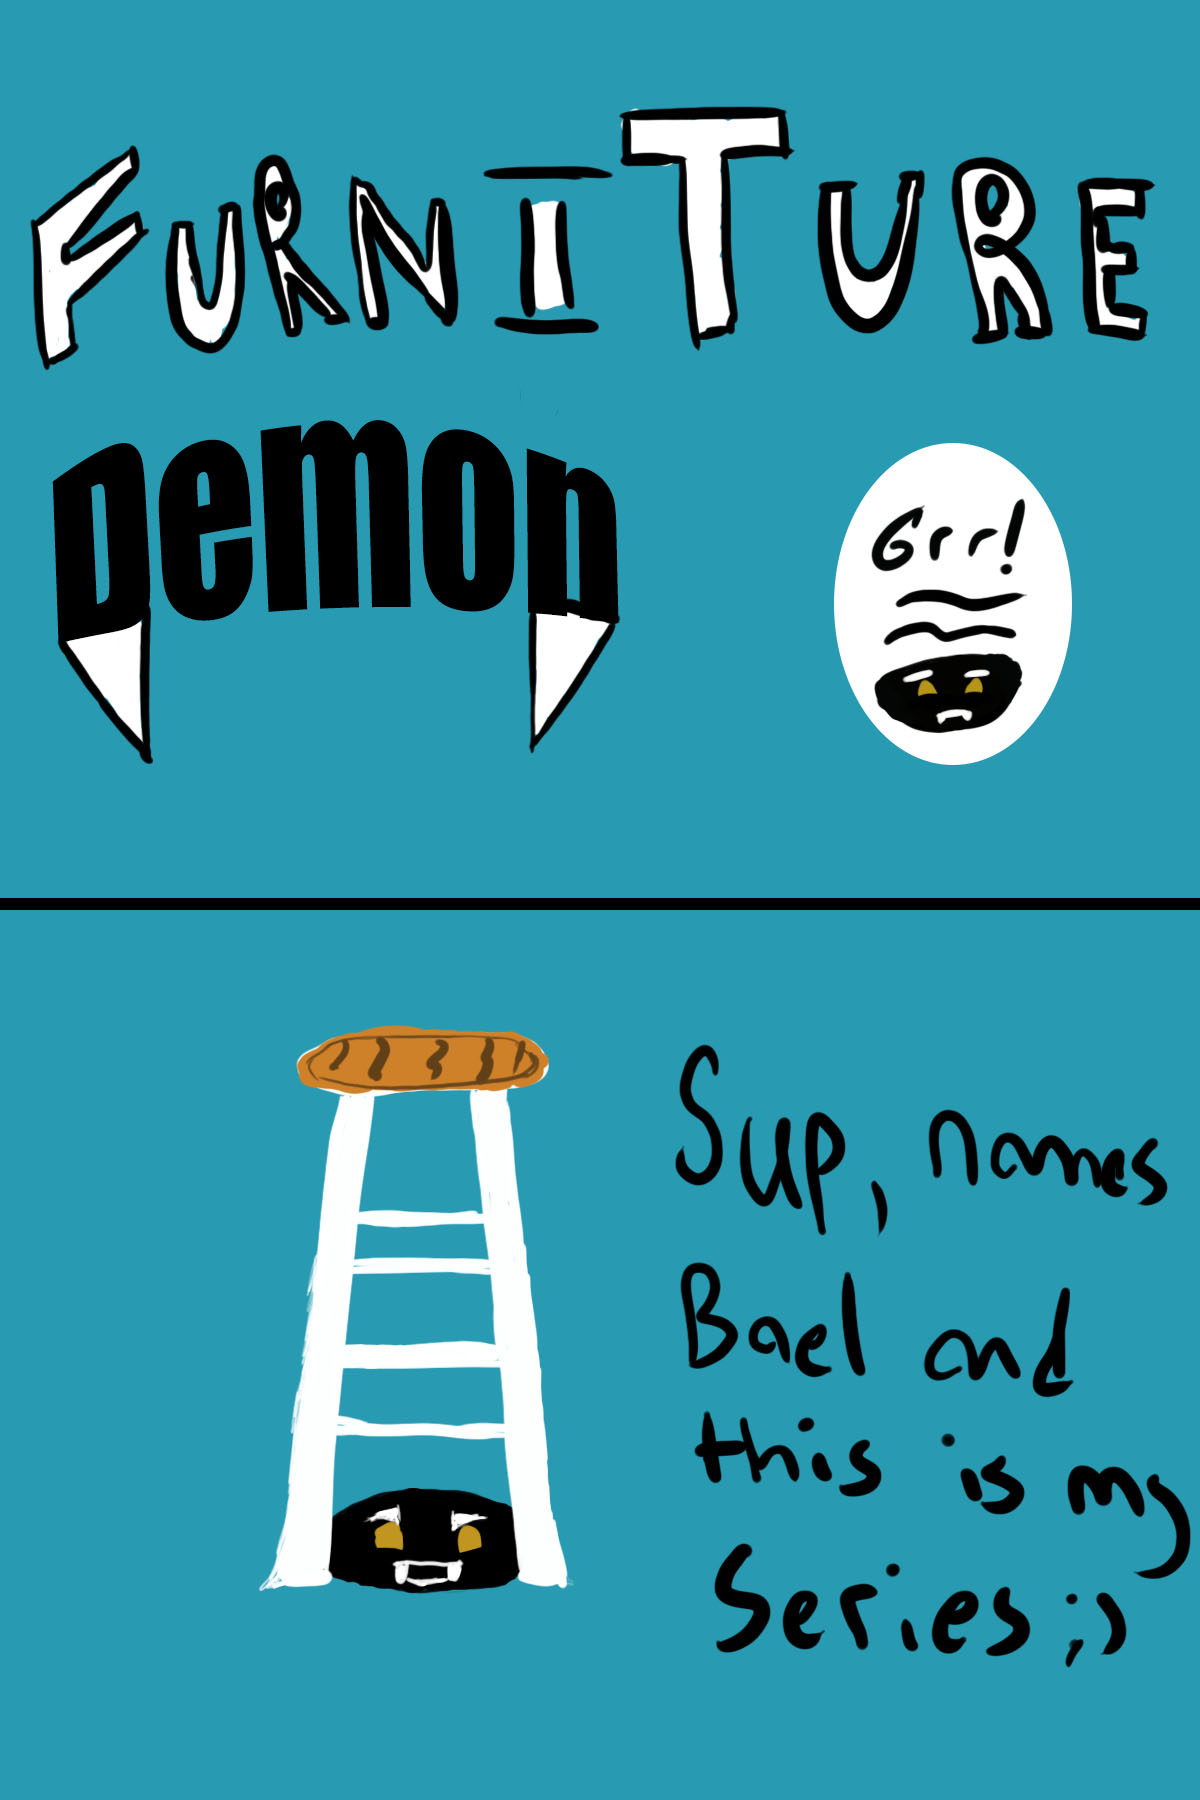 FURNITURE
Demon
Grr!
Sup, names
Bael and
this is my
Series ;)